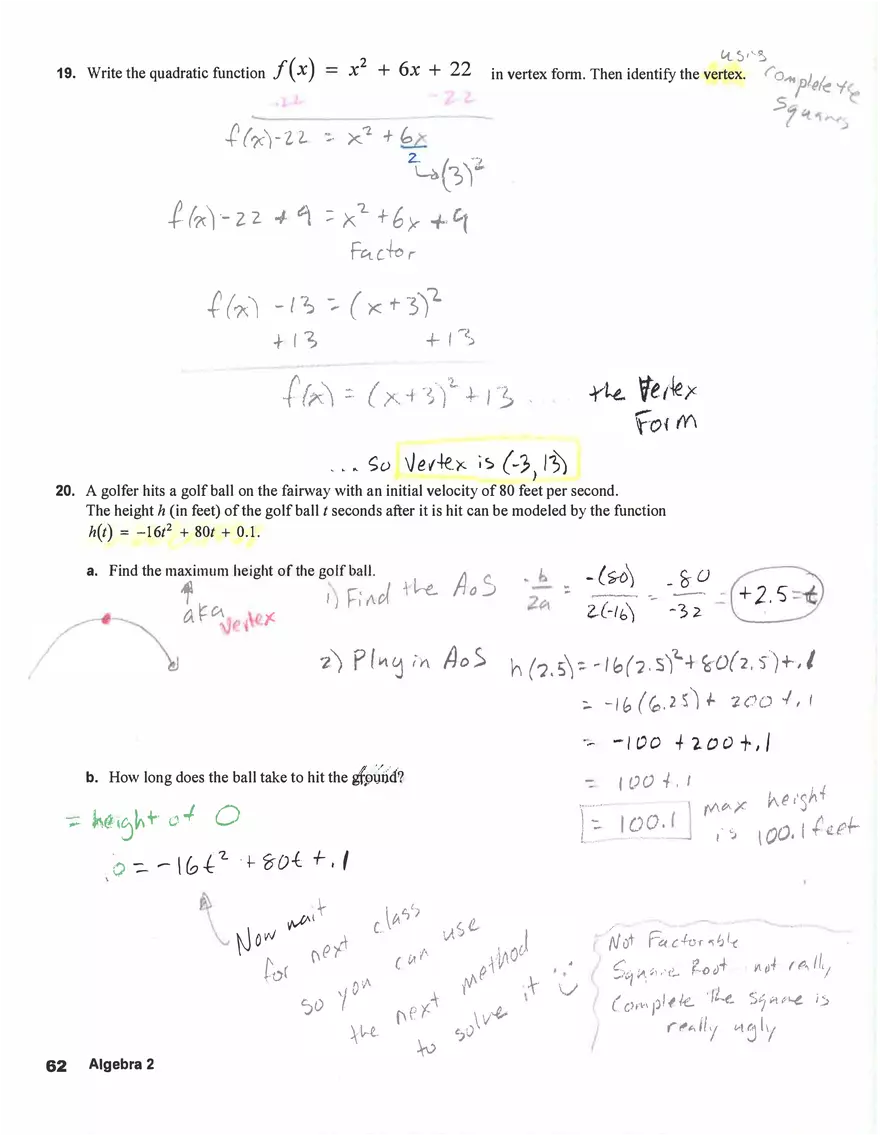 using
19. Write the quadratic function f(x) = x² + 6x + 22 in vertex form. Then identify the vertex.
Complete the
Squares
-22 -22
f(x)-22 = x² + 6x
2
↳(3)²
f(x)-22 + 9 = x² + 6x + 9
Factor
f(x) -13 = (x+3)²
+13 +13
f(x) = (x+3)² + 13 .... the Vertex
Form
... So Vertex is (-3, 13)
20. A golfer hits a golf ball on the fairway with an initial velocity of 80 feet per second.
The height h (in feet) of the golf ball t seconds after it is hit can be modeled by the function
h(t) = −16t² + 80t + 0.1.
a. Find the maximum height of the golf ball.
aka
Vertex
1) Find the AoS -b/2a = -(80)/2(-16) = -80/-32 = +2.5=t
2) Plug in AoS h(2.5)=-16(2.5)²+80(2.5)+.1
= -16(6.25)+ 200 +.1
= -100 +200+.1
= 100+.1
= 100.1 max height
is 100.1 feet
b. How long does the ball take to hit the ground?
= height of 0
0 = -16t² + 80t + .1
Now wait
for next class
so you can use
the next method
to solve it
Not Factorable
Square Root not really
Complete the Square is
really ugly
62 Algebra 2